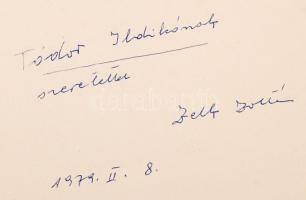 Tódor Ildikónak
szeretettel
Zelk Zoltán
1979. II. 8.